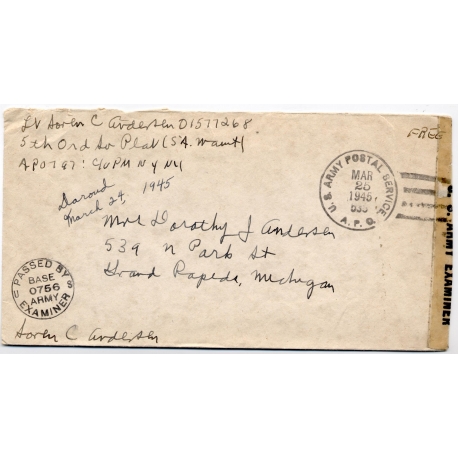 Lt Soren C Andersen O1577268
5th Ord Sv Plat (S.A. Maint)
FREE
APO 787 : C/O PM N Y NY
March 24, 1945
Mrs Dorothy J Andersen
539 N Park St
Grand Rapids, Michigan
U.S. ARMY POSTAL SERVICE
MAR
25
1945
A.P.O.
PASSED BY
BASE
0756
ARMY
EXAMINER
U S
Soren C Andersen
ARMY EXAMINER